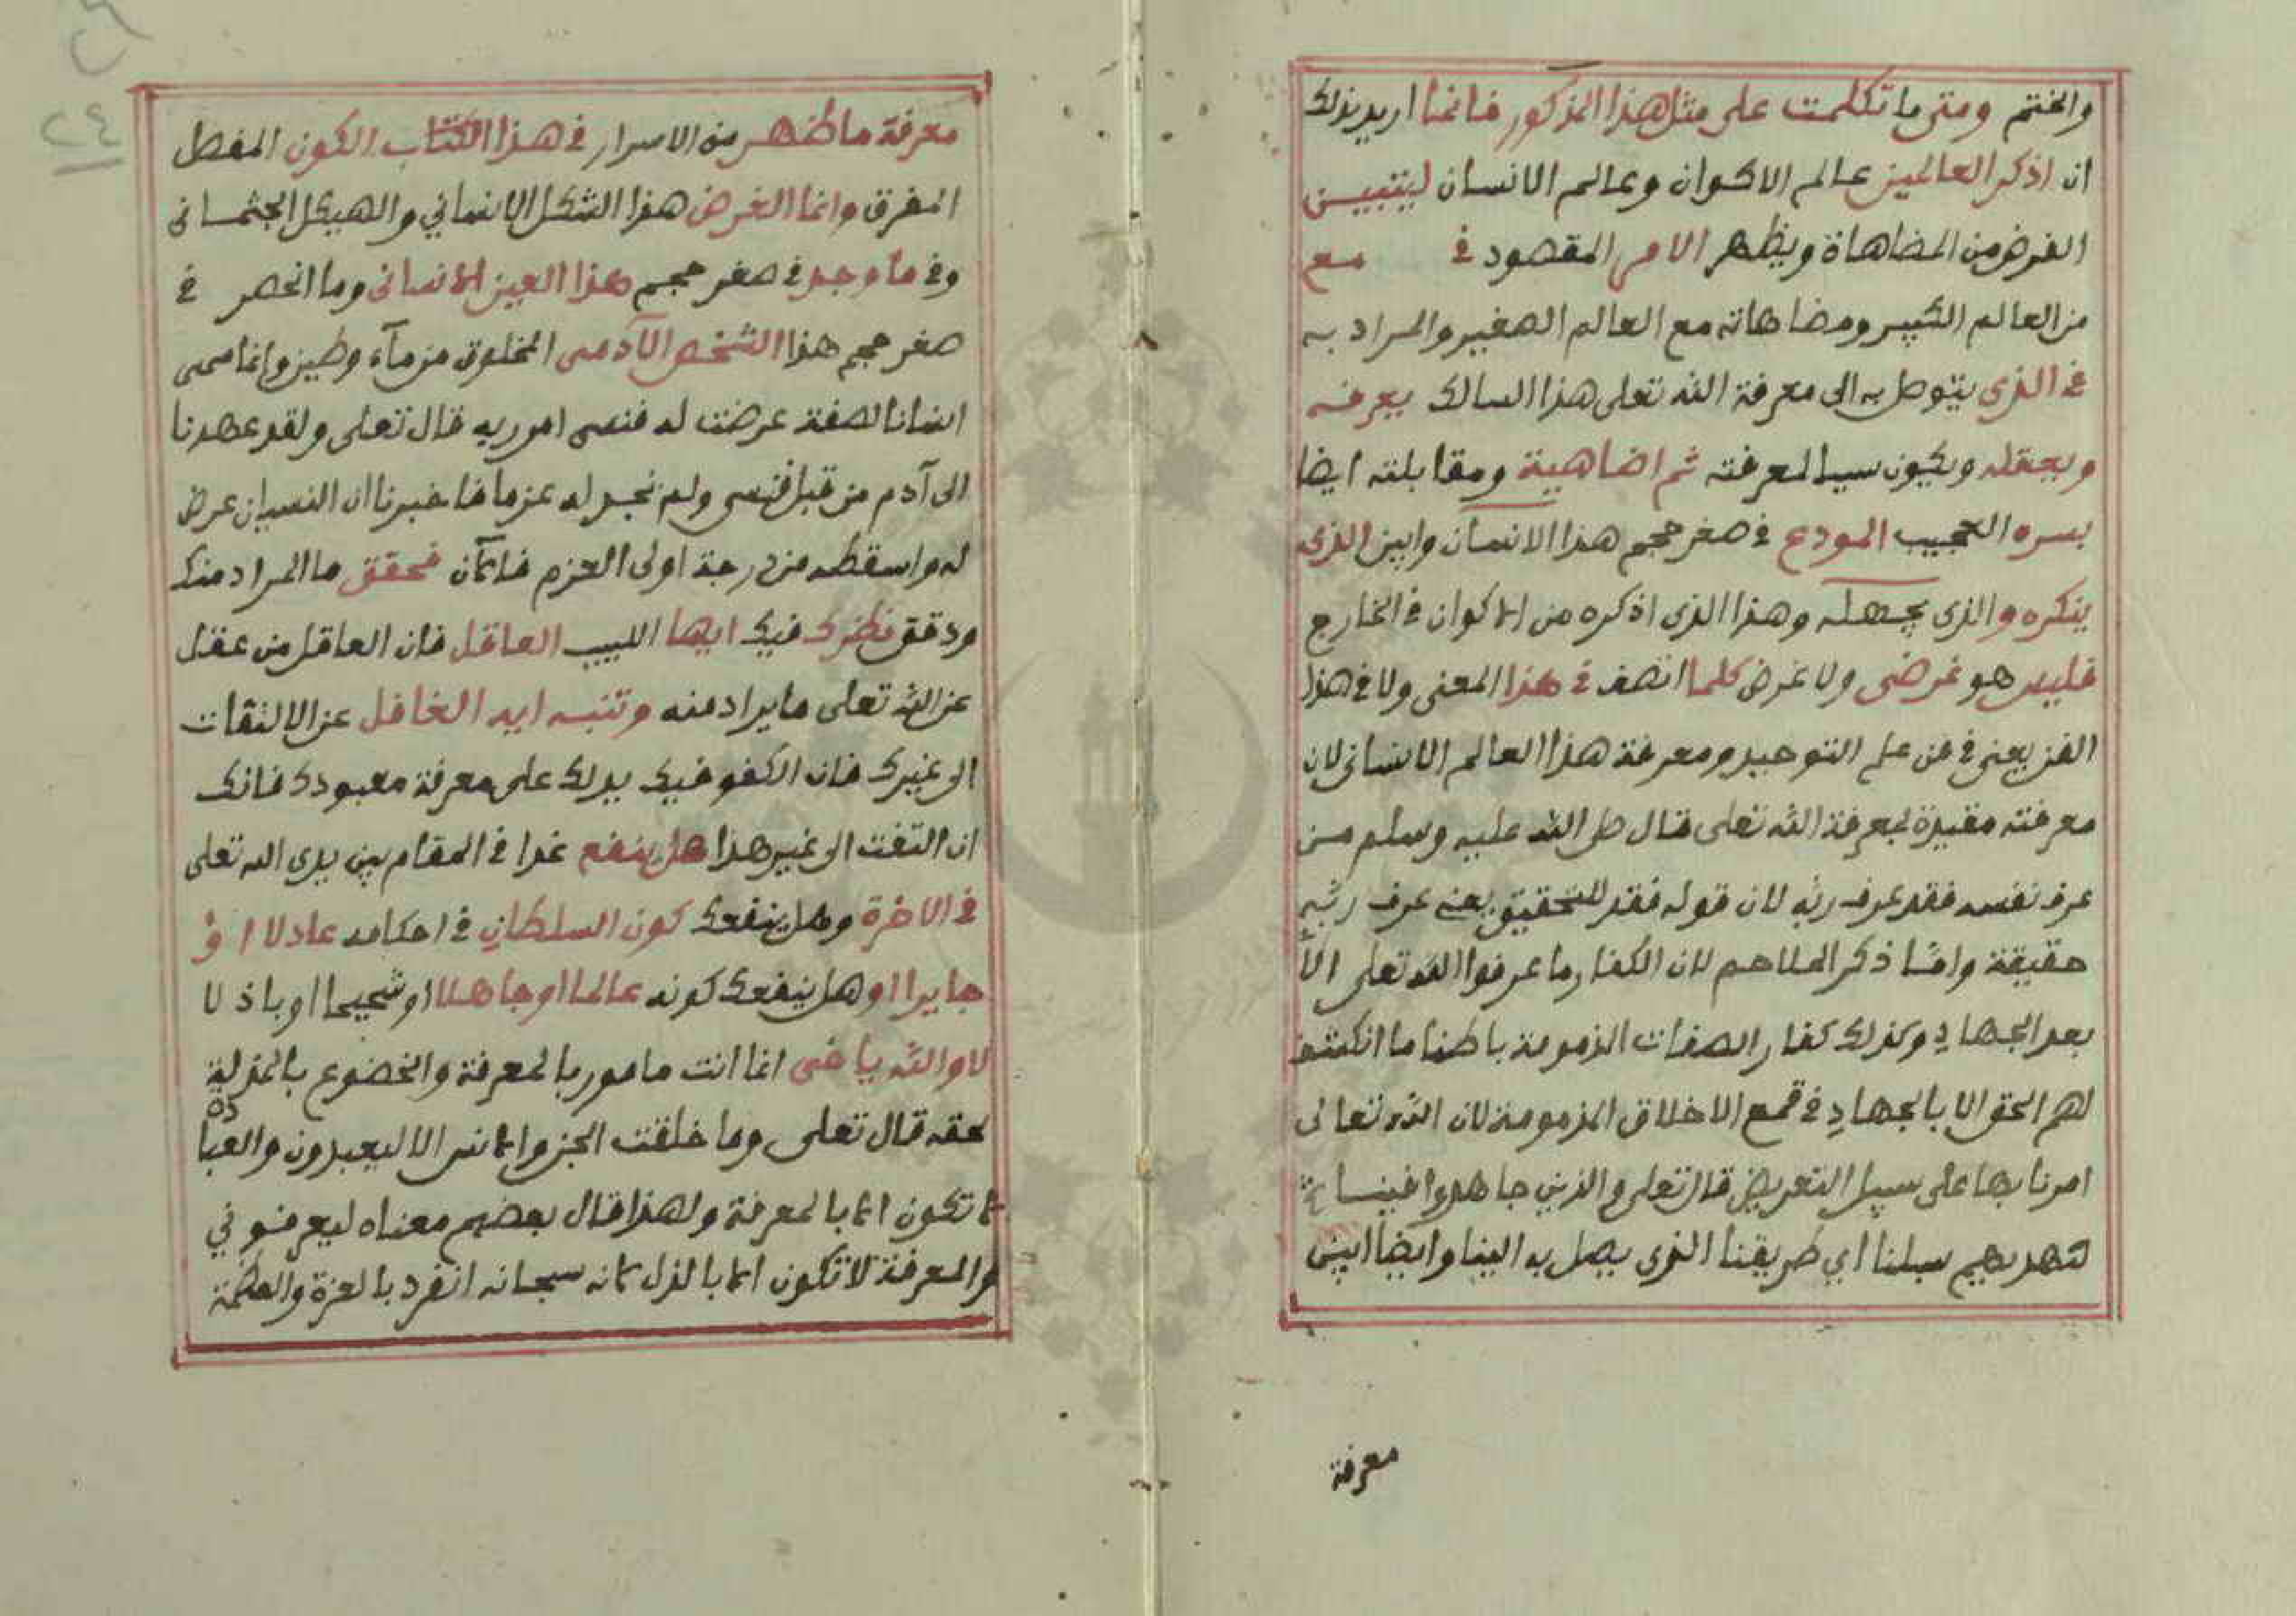 والختم ومتى ما تكلمت على مثل هذا المذكور فانما اريد بذلك
ان اذكر العالمين عالم الاكوان وعالم الانسان ليتبين
الغرض من المضاهاة ويظهر الامر المقصود في مع
من العالم الكبير ومضاهاته مع العالم الصغير والمراد به
في الذي يتوصل به الى معرفة الله تعلى هذا السالك يعرفه
ويعقله ويكون سببا لمعرفته ثم اضاهية ومقابلته ايضا
بسره العجيب المودع في صغر حجم هذا الانسان وابين الذي
ينكره والذي يجهله وهذا الذي اذكره من الاكوان في الخارج
فليس هو غرضي ولا غرض كلما اتصف في هذا المعنى ولا في هذا
الفن يعني في فن علم التوحيد ومعرفة هذا العالم الانساني لان
معرفته مقيدة لمعرفة الله تعلى قال صلى الله عليه وسلم من
عرف نفسه فقد عرف ربه لان قوله فقد للتحقيق يعني عرف ربه
حقيقة وامّا ذكر الملاحم لان الكفار ما عرفوا الله تعلى الّا
بعد الجهاد وكذلك كفار الصفات الذمومة باطنا ما انكشف
لهم الحق الا بالجهادِ في قمع الاخلاق المذمومة لان الله تعالى
امرنا بها على سبيل التعريض قال تعلى والذين جاهدوا فينا
لنهدينهم سبلنا اي طريقنا الذي يصل به الينا وايضا ابين
معرفة
٢٤
معرفة ما ظهر من الاسرار في هذا الكتاب الكون المفصل
المفرق وانما الغرض هذا الشكل الانساني والهيكل الجثماني
وفي ما وجد في صغر حجم هذا العين الانساني وما انحصر في
صغر حجم هذا الشخص الآدمي المخلوق من مآء وطين وانما سمى
انسانا لصفة عرضت له فنسى امور به قال تعلى ولقد عهدنا
الى آدم من قبل فنسى ولم نجد له عزما فاخبرنا ان النسيان عرض
له واسقطه من درجة اولى العزم فالآن فحقق ما المراد منك
ودقق نظرك فيك ايها اللبيب العاقل فان العاقل من عقل
عن الله تعلى ما يراد منه وتنبه ايه الغافل عن الالتقات
الى غيرك فان الكفو فيك يدلك على معرفة معبودك فانك
ان التفت الى غير هذا هل ينفع غدا في المقام بين يدى الله تعلى
في الاخرة وهل ينفعك كون السلطان في احكامه عادلا اوْ
جايرا او هل ينفعك كونه عالما او جاهلا او شحيحا او باذلا
لا والله يا خى انما انت مامور بالمعرفة والخضوع بالمذلة
لحقه قال تعلى وما خلقت الجن والانس الا ليعبدون والعبادة
لا تكون الا بالمعرفة ولهذا قال بعضهم معناه ليعرفوني
والمعرفة لا تكون الا بالذل لانه سبحانه انفرد بالعزة والعظمة